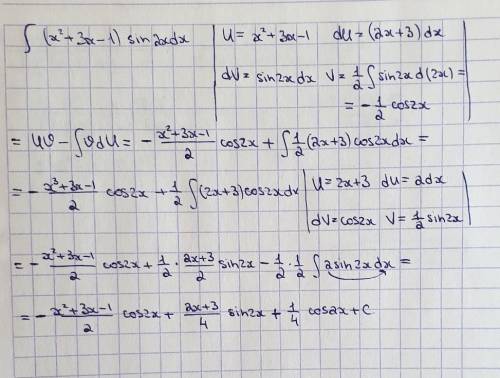 ∫ (x²+3x-1) sin2xdx | U = x²+3x-1 dU = (2x+3) dx
dV = sin2x dx V = 1/2 ∫ sin2x d(2x) =
= - 1/2 cos2x
= UV - ∫VdU = - (x²+3x-1)/2 cos2x + ∫ 1/2 (2x+3) cos2x dx =
= - (x³+3x-1)/2 cos2x + 1/2 ∫ (2x+3) cos2x dx | U = 2x+3 dU = 2dx
dV = cos2x V = 1/2 sin2x
= - (x²+3x-1)/2 cos2x + 1/2 · (2x+3)/2 sin2x - 1/2 · 1/2 ∫ 2sin2x dx =
= - (x²+3x-1)/2 cos2x + (2x+3)/4 sin2x + 1/4 cos2x + C